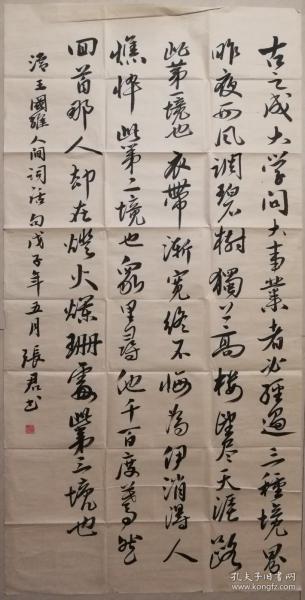 古之成大学问大事業者必经过三種境界
昨夜西风凋碧樹獨上高楼望尽天涯路
此第一境也衣帶漸宽终不悔為伊消得人
憔悴此第二境也众里尋他千百度蓦然
回首那人却在燈火爛珊處此第三境也
清王國维人间词话句戊子年五月張君书
孔夫子旧书网